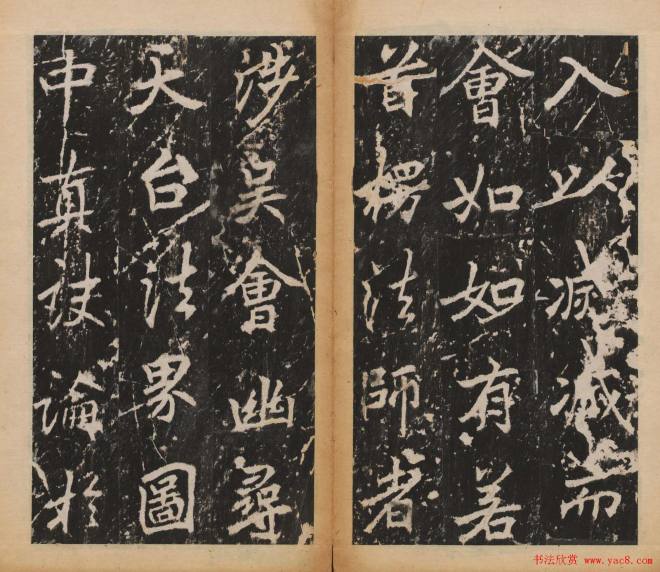 入以滅滅而
會如如有若
首楞法師者
涉吴會幽尋
天台法界圖
中真訣論於
书法欣赏 www.yac8.com